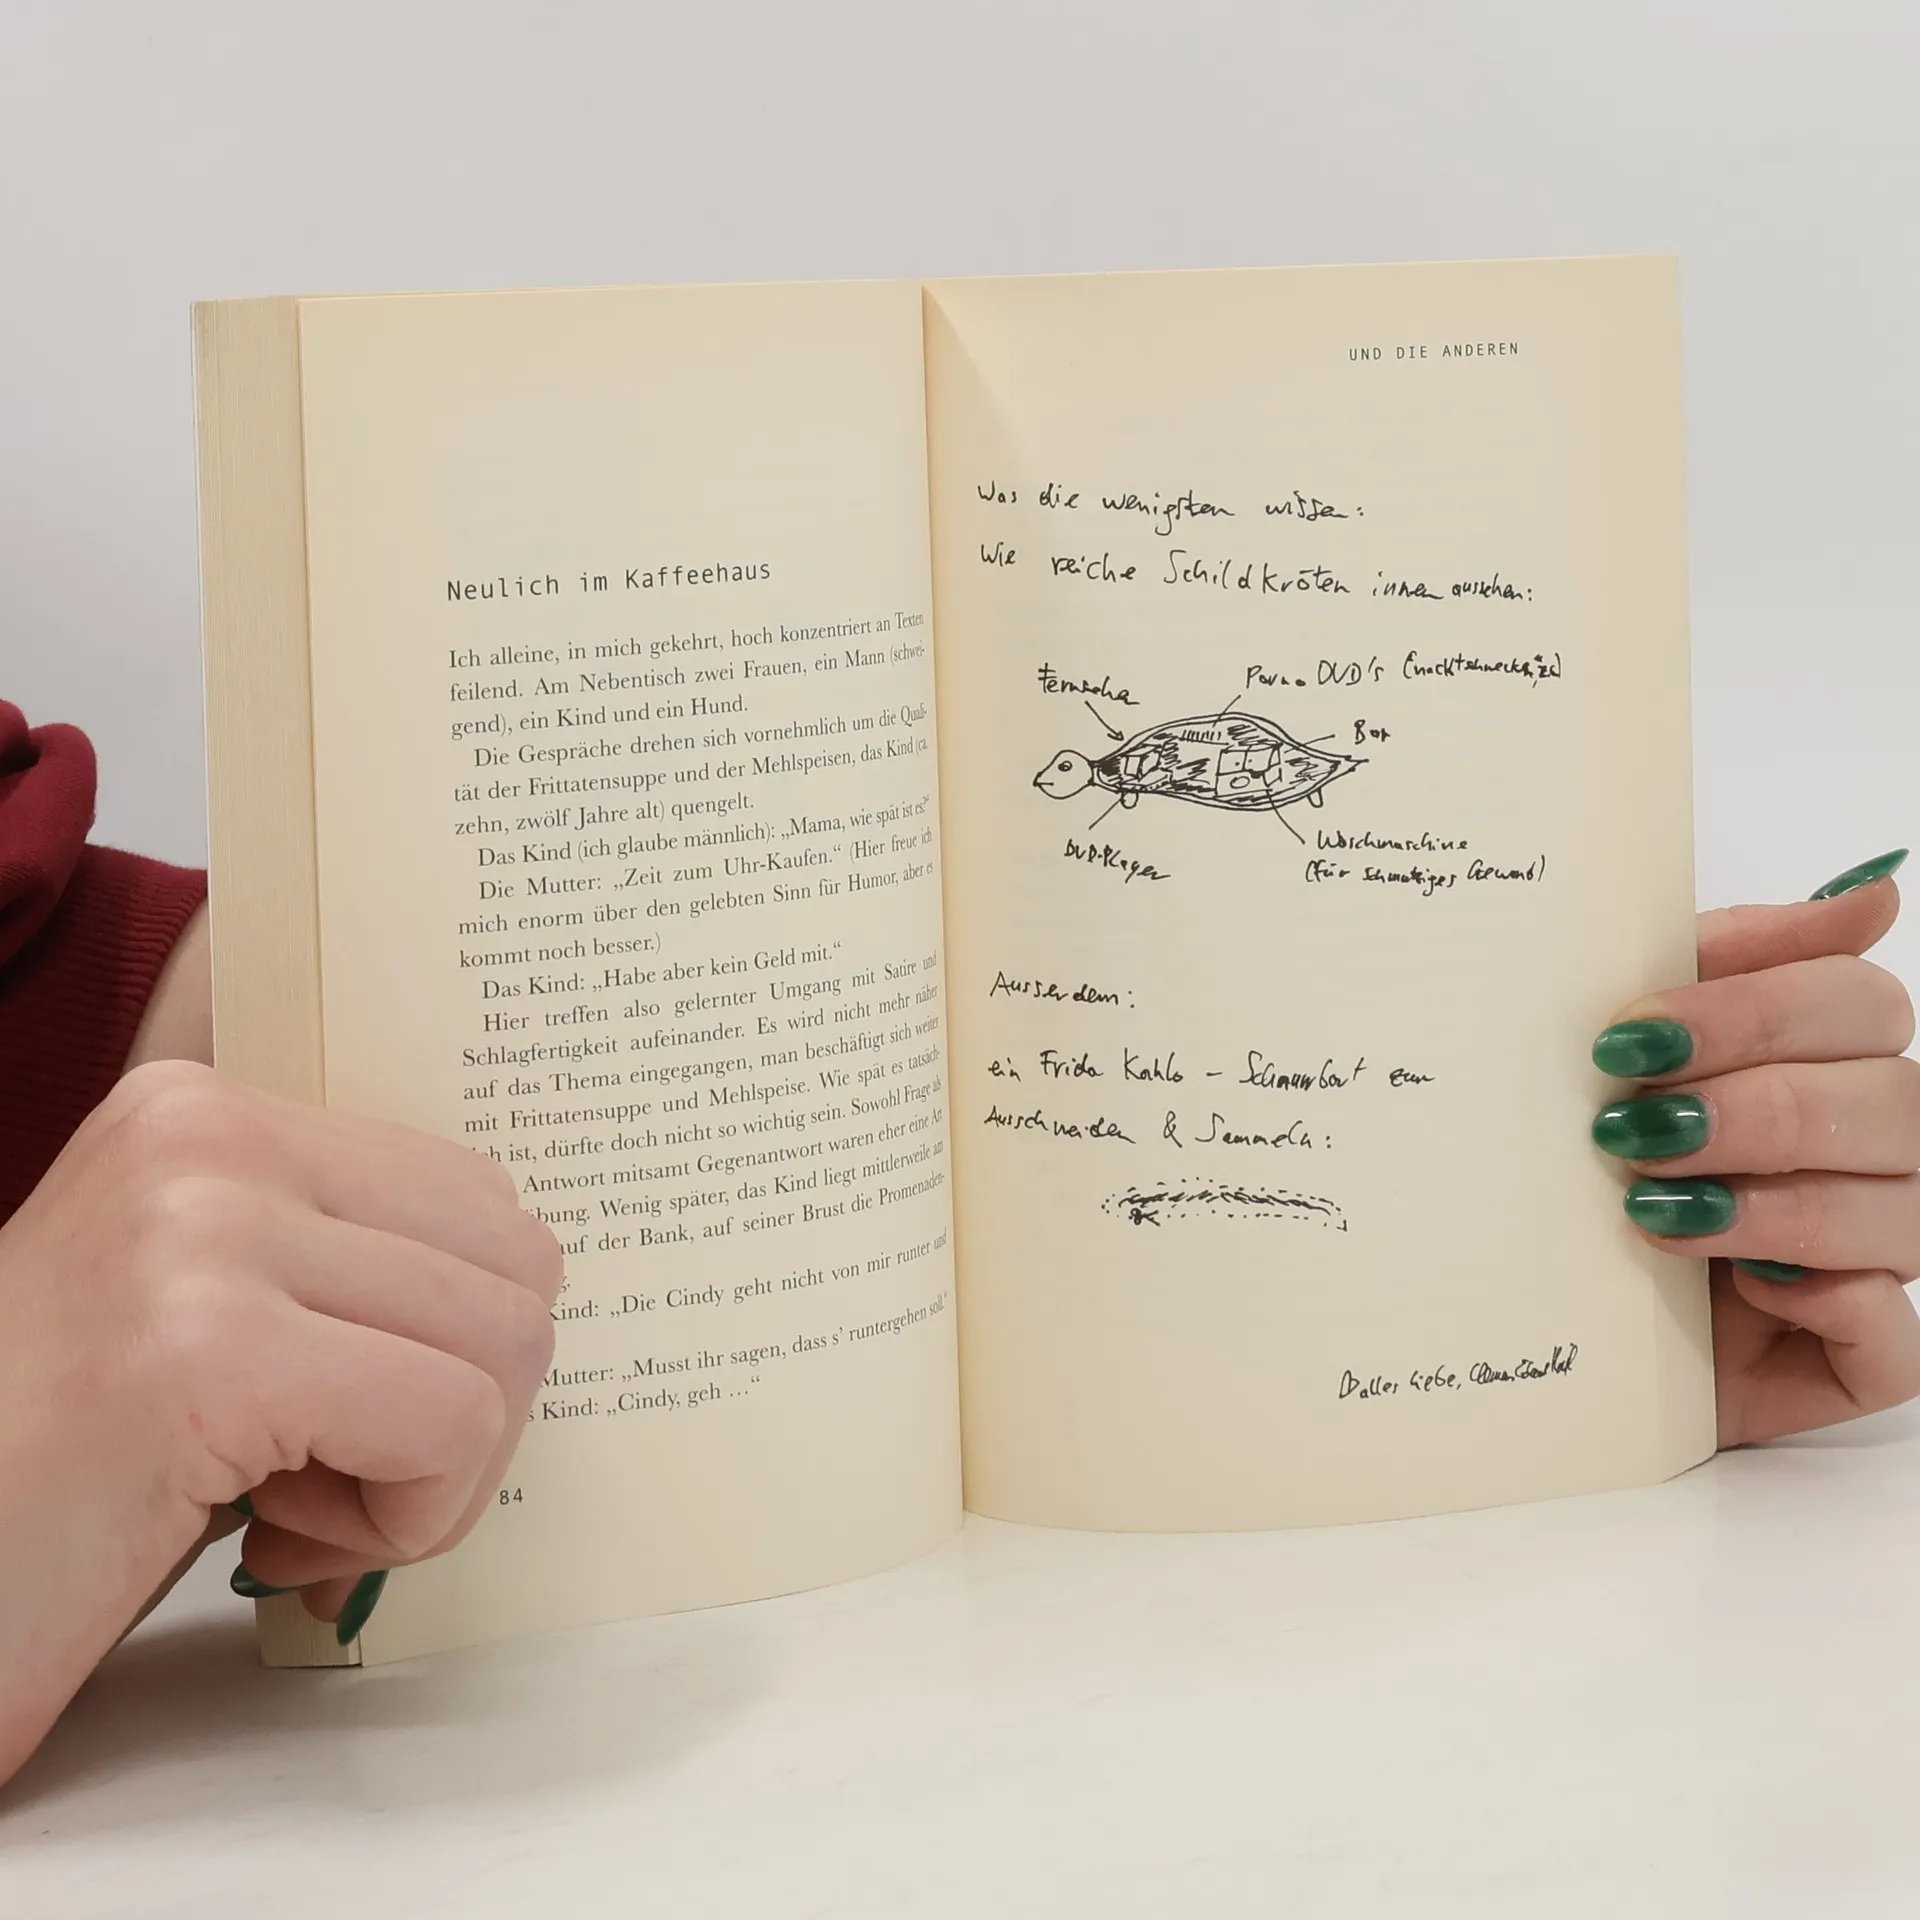 Neulich im Kaffeehaus
Ich alleine, in mich gekehrt, hoch konzentriert an Texten
feilend. Am Nebentisch zwei Frauen, ein Mann (schwei-
gend), ein Kind und ein Hund.
Die Gespräche drehen sich vornehmlich um die Quali-
tät der Frittatensuppe und der Mehlspeisen, das Kind (ca.
zehn, zwölf Jahre alt) quengelt.
Das Kind (ich glaube männlich): „Mama, wie spät ist es?“
Die Mutter: „Zeit zum Uhr-Kaufen.“ (Hier freue ich
mich enorm über den gelebten Sinn für Humor, aber es
kommt noch besser.)
Das Kind: „Habe aber kein Geld mit.“
Hier treffen also gelernter Umgang mit Satire und
Schlagfertigkeit aufeinander. Es wird nicht mehr näher
auf das Thema eingegangen, man beschäftigt sich weiter
mit Frittatensuppe und Mehlspeise. Wie spät es tatsäch-
ist, dürfte doch nicht so wichtig sein. Sowohl Frage als
Antwort mitsamt Gegenantwort waren eher eine Art
bung. Wenig später, das Kind liegt mittlerweile am
auf der Bank, auf seiner Brust die Promenaden-
g.
Kind: „Die Cindy geht nicht von mir runter und
Mutter: „Musst ihr sagen, dass s’ runtergehen soll.“
s Kind: „Cindy, geh …“
84
UND DIE ANDEREN
Was die wenigsten wissen:
Wie reiche Schildkröten innen aussehen:
Fernseher
Porno DVD's (Nacktschnecken,
Bar
DVD-Player
Waschmaschine
(für schmutziges Gewand)
Ausserdem:
ein Frida Kahlo - Schnurrbart zum
Ausschneiden & Sammeln:
alles Liebe,